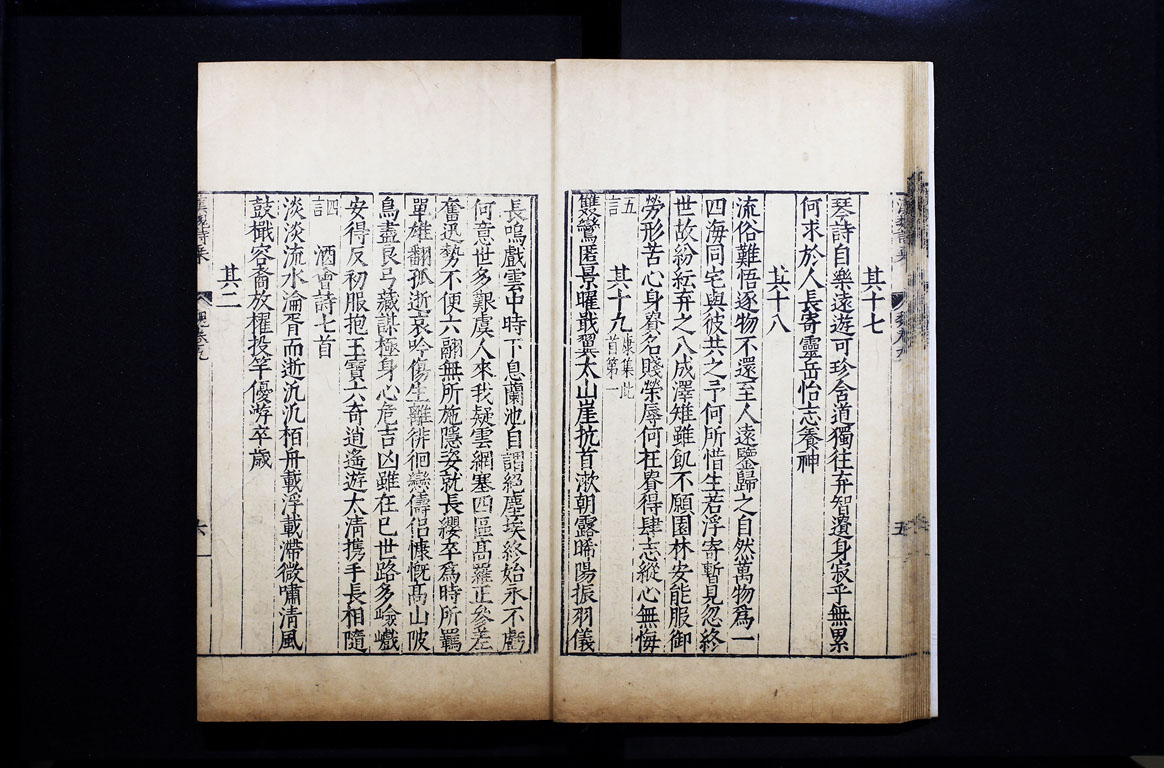 其十七
琴詩自樂遠遊可珍含道獨往弃智遺身寂乎無累
何求於人長寄靈岳怡志養神
其十八
流俗難悟逐物不還至人遠鑒歸之自然萬物爲一
四海同宅與彼共之予何所惜生若浮寄暫見忽終
世故紛紜弃之八成澤雉雖飢不願園林安能服御
勞形苦心身貴名賤榮辱何在貴得肆志縱心無悔
其十九康集此首第一
五言
雙鸞匿景曜戢翼太山崖抗首漱朝露晞陽振羽儀
長鳴戲雲中時下息蘭池自謂絕塵埃終始永不虧
何意世多艱虞人來我疑雲網塞四區高羅正參差
奮迅勢不便六翮無所施隱姿就長纓卒爲時所羈
單雄翩孤逝哀吟傷生離徘徊戀儔侶慷慨高山陂
鳥盡良弓藏謀極身心危吉凶雖在已世路多嶮巇
安得反初服抱玉寶六奇逍遙遊太清攜手長相隨
四言
酒會詩七首
淡淡流水淪胥而逝汎汎栢舟載浮載滯微嘯清風
鼓檝容裔放櫂投竿優游卒歲
其二
五
六